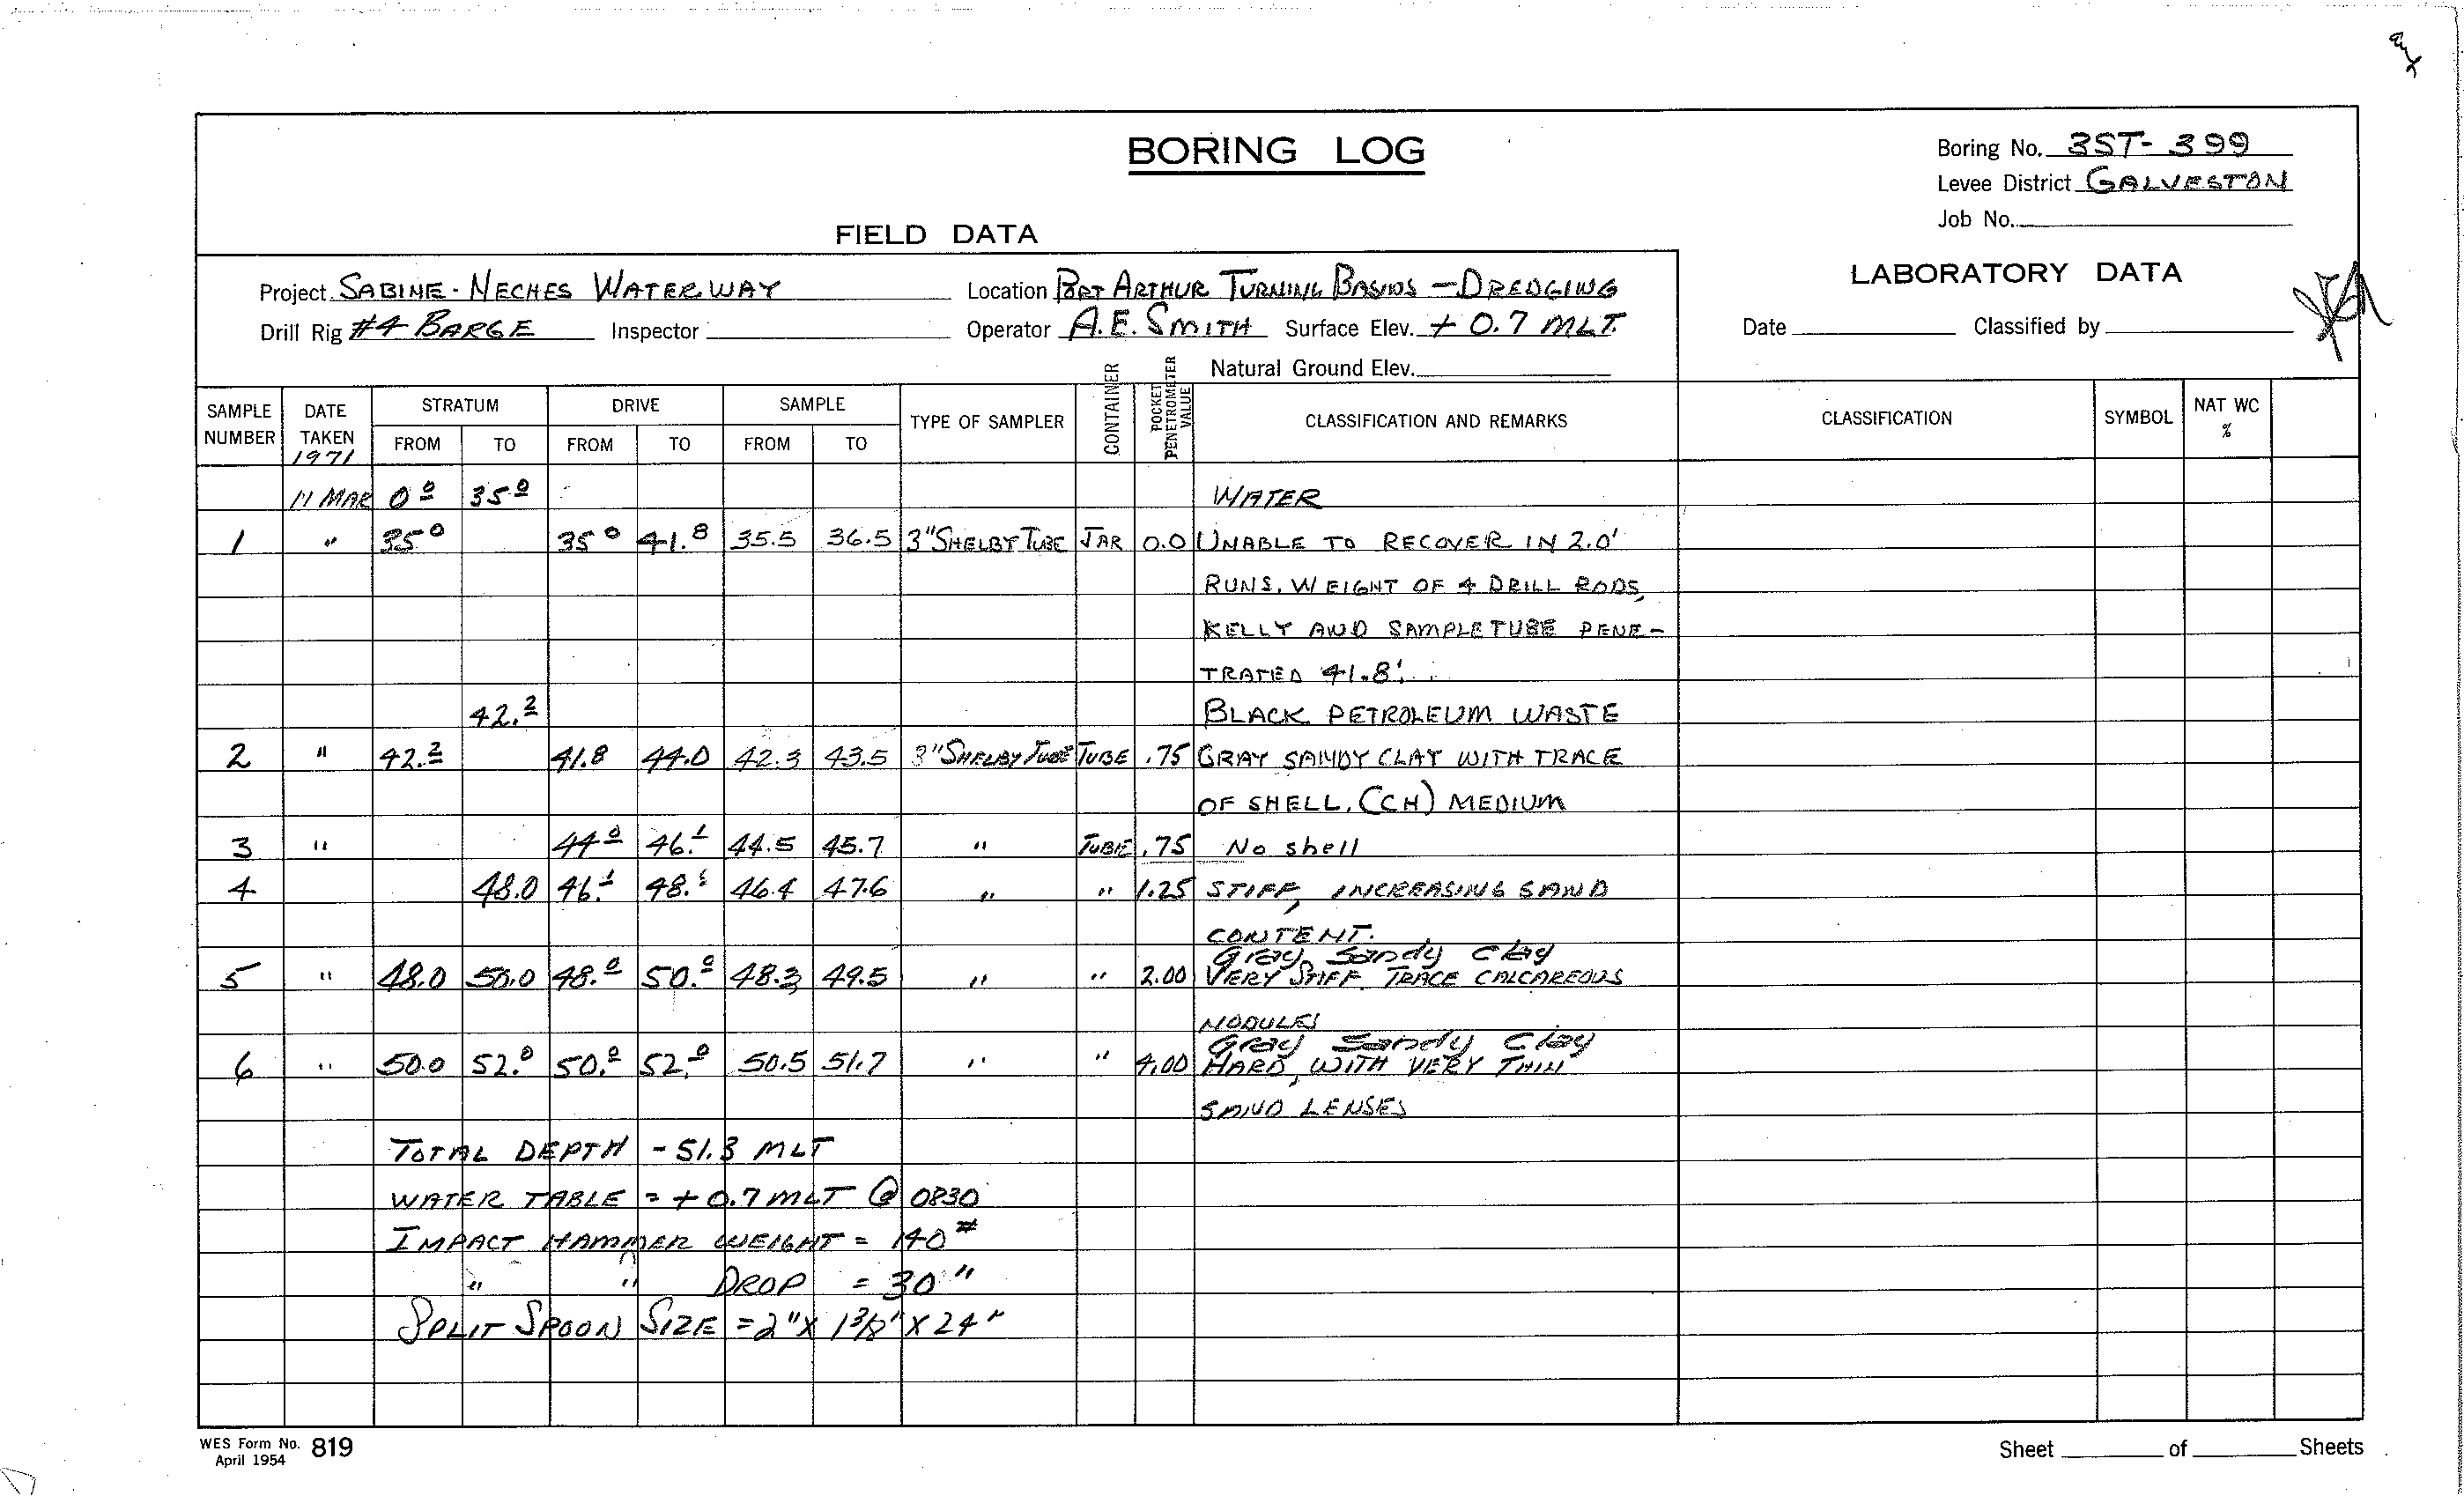 BORING LOG
Boring No. 3ST-399
Levee District GALVESTON
Job No.
FIELD DATA
LABORATORY DATA
Project SABINE-NECHES WATERWAY Location PORT ARTHUR TURNING BASINS — DREDGING
Drill Rig #4 BARGE Inspector Operator A.E. SMITH Surface Elev. + 0.7 MLT. Date Classified by
Natural Ground Elev.
SAMPLE NUMBER DATE TAKEN 1971 STRATUM FROM TO DRIVE FROM TO SAMPLE FROM TO TYPE OF SAMPLER CONTAINER POCKET PENETROMETER VALUE CLASSIFICATION AND REMARKS CLASSIFICATION SYMBOL NAT WC %
11 MAR 0.0 35.0 WATER
1 " 35.0 35.0 41.8 35.5 36.5 3" SHELBY TUBE JAR 0.0 UNABLE TO RECOVER IN 2.0'
RUNS. WEIGHT OF 4 DRILL RODS,
KELLY AND SAMPLE TUBE PENE-
TRATED 41.8'.
42.2 BLACK PETROLEUM WASTE
2 " 42.2 41.8 44.0 42.3 43.5 3" SHELBY TUBE TUBE .75 GRAY SANDY CLAY WITH TRACE
OF SHELL. (CH) MEDIUM
3 " 44.0 46.1 44.5 45.7 " TUBE .75 No shell
4 48.0 46.1 48. 46.4 47.6 " " 1.25 STIFF, INCREASING SAND
CONTENT.
Gray Sandy Clay
5 " 48.0 50.0 48.0 50.0 48.3 49.5 " " 2.00 VERY STIFF. TRACE CALCAREOUS
NODULES
Gray Sandy Clay
6 " 50.0 52.0 50.0 52.0 50.5 51.7 " " 4.00 HARD, WITH VERY THIN
SAND LENSES
TOTAL DEPTH - 51.3 MLT
WATER TABLE = + 0.7 MLT @ 0830
IMPACT HAMMER WEIGHT = 140 #
" " DROP = 30"
SPLIT SPOON SIZE = 2" X 1 3/8" X 24"
WES Form No. 819
April 1954
Sheet of Sheets